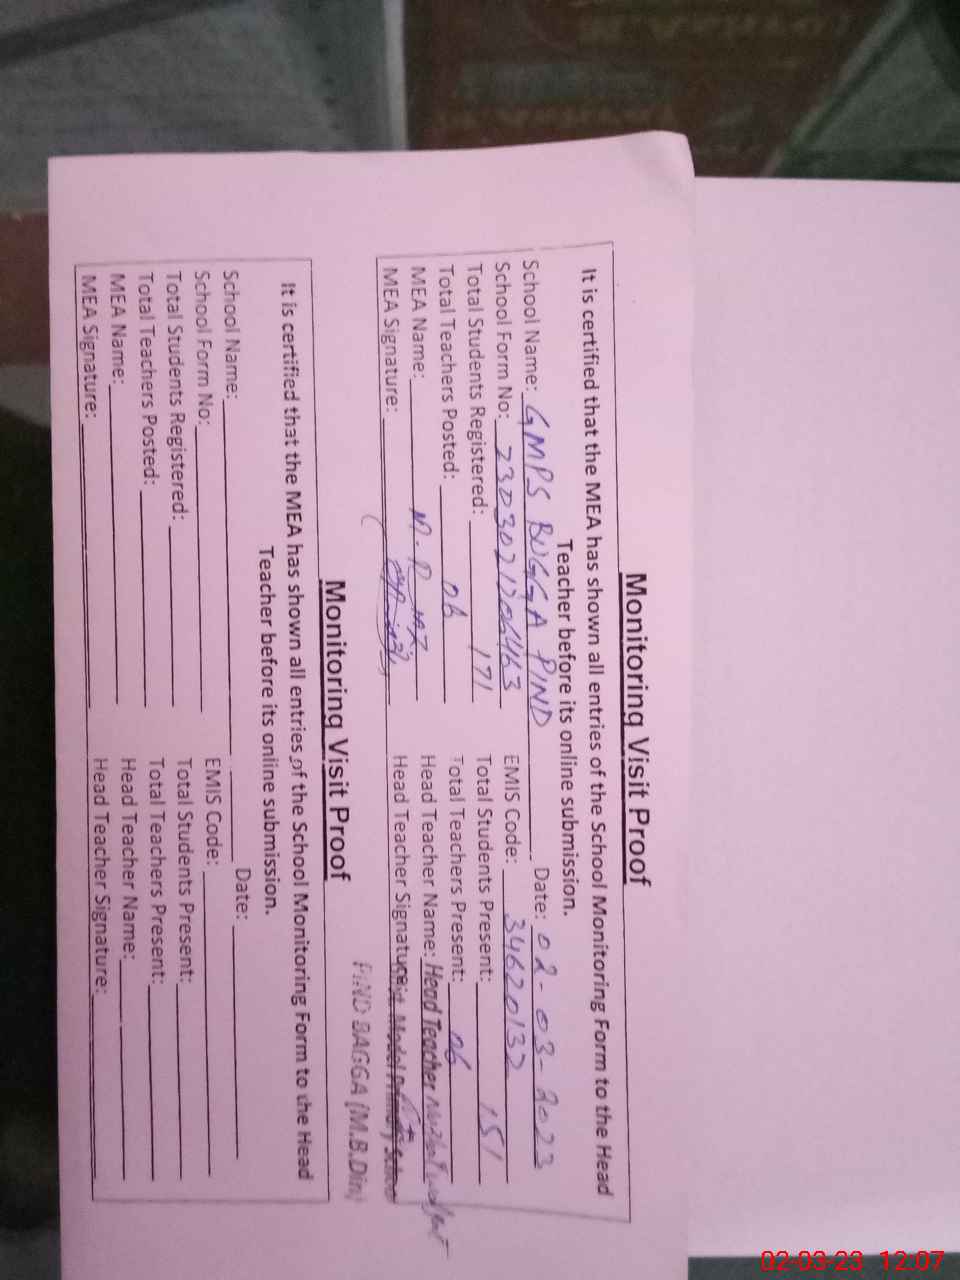 Monitoring Visit Proof
It is certified that the MEA has shown all entries of the School Monitoring Form to the Head
Teacher before its online submission.
School Name: GMPS BUGGA PIND Date: 02-03-2023
School Form No: 2303021206463 EMIS Code: 34620132
Total Students Registered: 171 Total Students Present: 151
Total Teachers Posted: 06 Total Teachers Present: 06
MEA Name: Head Teacher Name: Head Teacher
MEA Signature: Head Teacher Signature: Model Primary School
PIND BAGGA (M.B.Din)
Monitoring Visit Proof
It is certified that the MEA has shown all entries of the School Monitoring Form to the Head
Teacher before its online submission.
School Name: Date:
School Form No: EMIS Code:
Total Students Registered: Total Students Present:
Total Teachers Posted: Total Teachers Present:
MEA Name: Head Teacher Name:
MEA Signature: Head Teacher Signature:
02-03-23 12:07